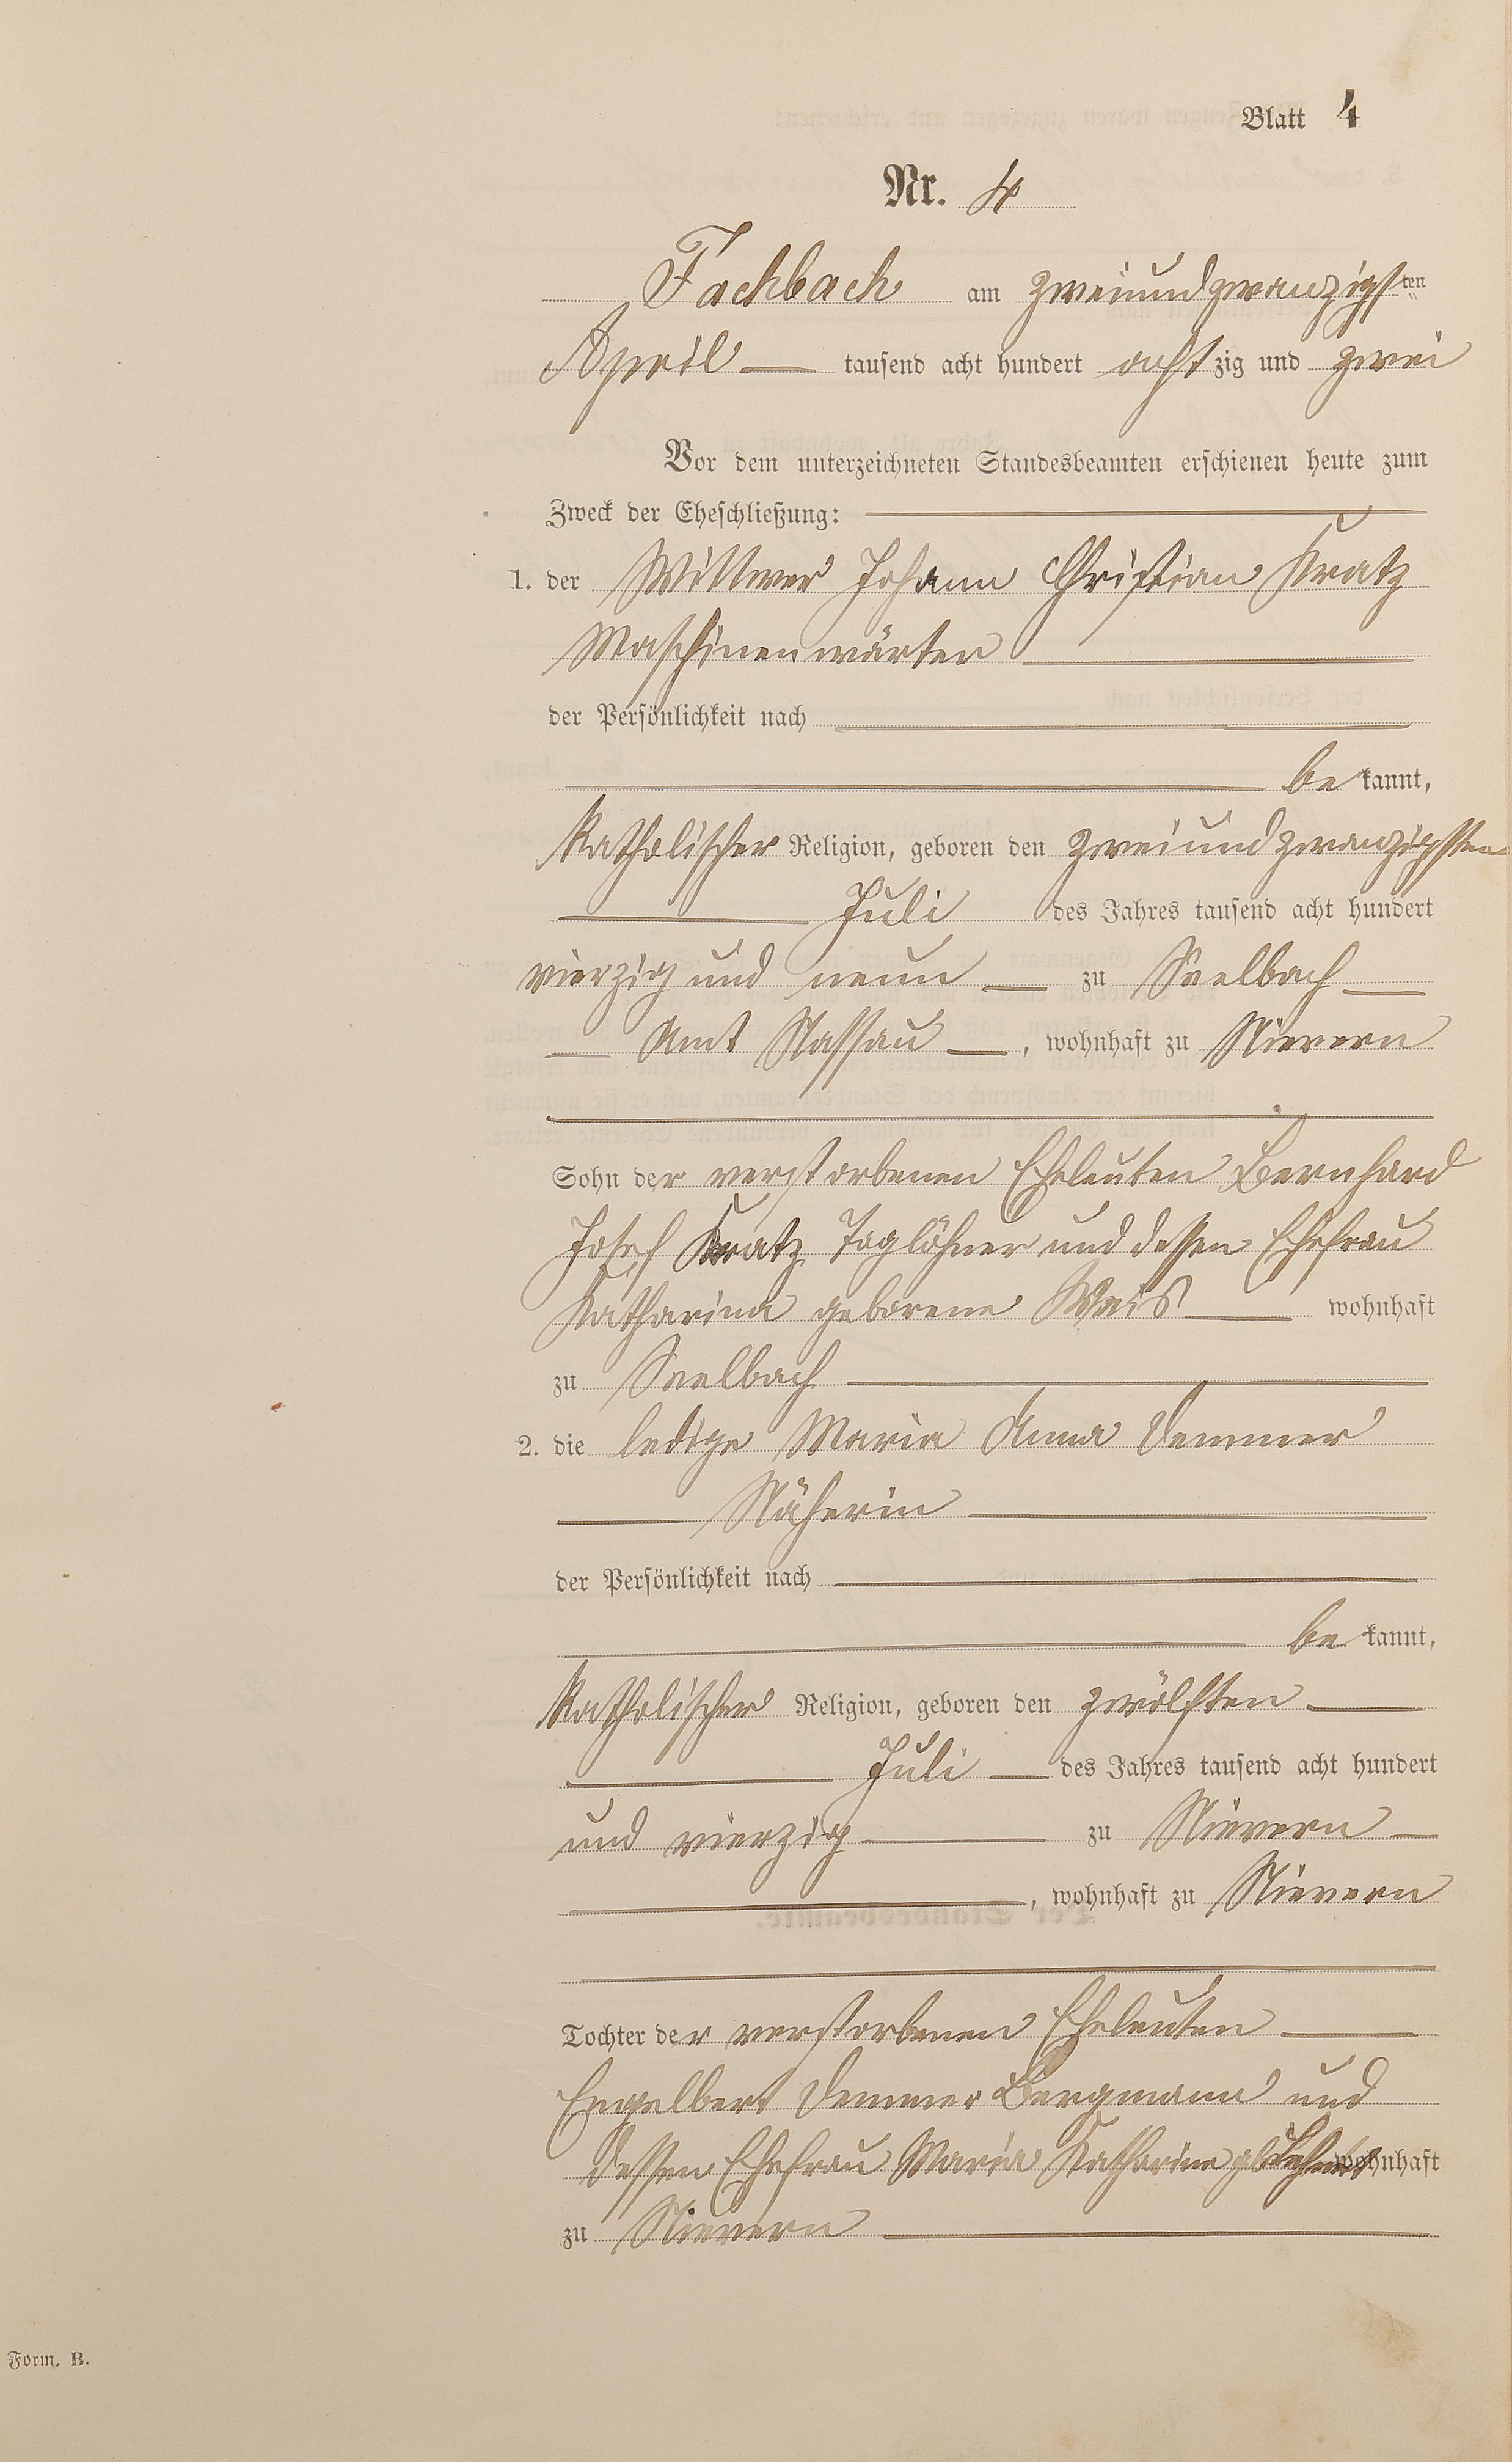 Blatt 4
Nr. 4
Fachbach am zweiundzwanzigsten
April tausend acht hundert achtzig und zwei
Vor dem unterzeichneten Standesbeamten erschienen heute zum
Zweck der Eheschließung:
1. der Wittwer Johann Christian Kratz
Maschinenwärter
der Persönlichkeit nach
bekannt,
Katholischer Religion, geboren den zweiundzwanzigsten
Juli des Jahres tausend acht hundert
vierzig und neun zu Seelbach
Amt Nassau, wohnhaft zu Nievern
Sohn der verstorbenen Eheleuten Bernhard
Josef Kratz Taglöhner und dessen Ehefrau
Katharina geborene Weis wohnhaft
zu Seelbach
2. die ledige Maria Anna Demmer
Näherin
der Persönlichkeit nach
bekannt,
Katholischer Religion, geboren den zwölften
Juli des Jahres tausend acht hundert
und vierzig zu Nievern
, wohnhaft zu Nievern
Tochter der verstorbenen Eheleuten
Engelbert Demmer Bergmann und
dessen Ehefrau Maria Katharina wohnhaft
zu Nievern
Form. B.